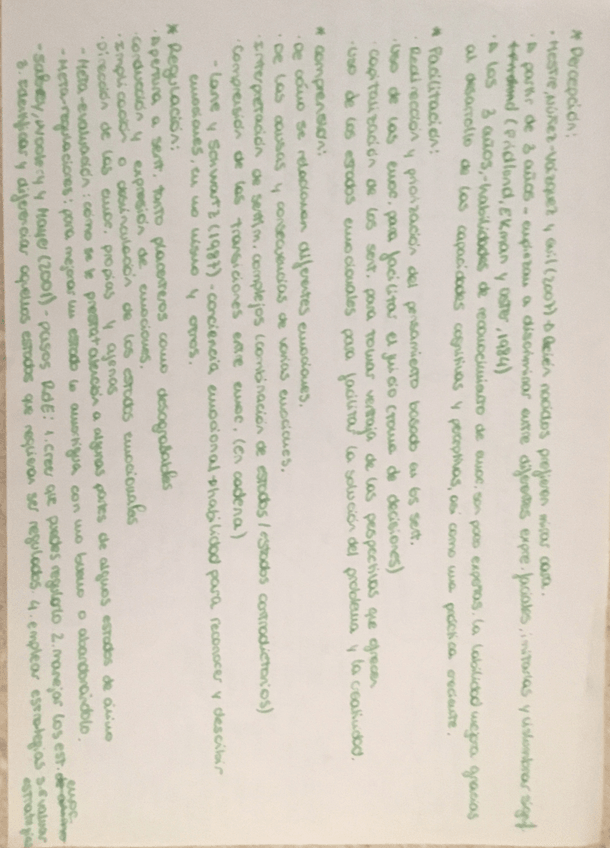 * Percepción:
· Mestre, Núñez-Vázquez y Guil (2007) → Recién nacidos prefieren mirar cara.
· A partir de 3 años - empiezan a discriminar entre diferentes expre. faciales, imitarlas y vislumbrar signf.
(Fridlund, Ekman y Oster, 1984)
· A los 3 años, → habilidades de reconocimiento de emoc. son poco expertas. La habilidad mejora gracias
al desarrollo de las capacidades cognitivas y perceptivas, así como una práctica creciente.
* Facilitación:
· Redirección y priorización del pensamiento basado en los sent.
· Uso de las emoc. para facilitar el juicio (toma de decisiones)
· Capitalización de los sent. para tomar ventaja de las perspectivas que ofrecen
· Uso de los estados emocionales para facilitar la solución del problema y la creatividad.
* Comprensión:
· De cómo se relacionan diferentes emociones.
· De las causas y consecuencias de varias emociones.
· Interpretación de sentim. complejos (combinación de estados / estados contradictorios)
· Comprensión de las transiciones entre emoc. (en cadena)
- Lane y Schwartz (1987) - conciencia emocional → habilidad para reconocer y describir
emociones, en uno mismo y otros.
* Regulación:
· Apertura a sent. tanto placenteros como desagradables
· Conducción y expresión de emociones.
· Implicación o desvinculación de los estados emocionales
· Dirección de las emoc. propias y ajenas
- Meta-evaluación: cómo se le presta atención a algunas partes de algunos estados de ánimo
- Meta-regulaciones: para mejorar un estado lo amortigua con uno bueno o abordándolo.
- Salovey, Woolery y Mayer (2001) - pasos RdE: 1. creer que puedes regularlo 2. manejar los est. emoc.
3. identificar y diferenciar aquellos estados que requieran ser regulados. 4. emplear estrategias 5. evaluar
estrategias